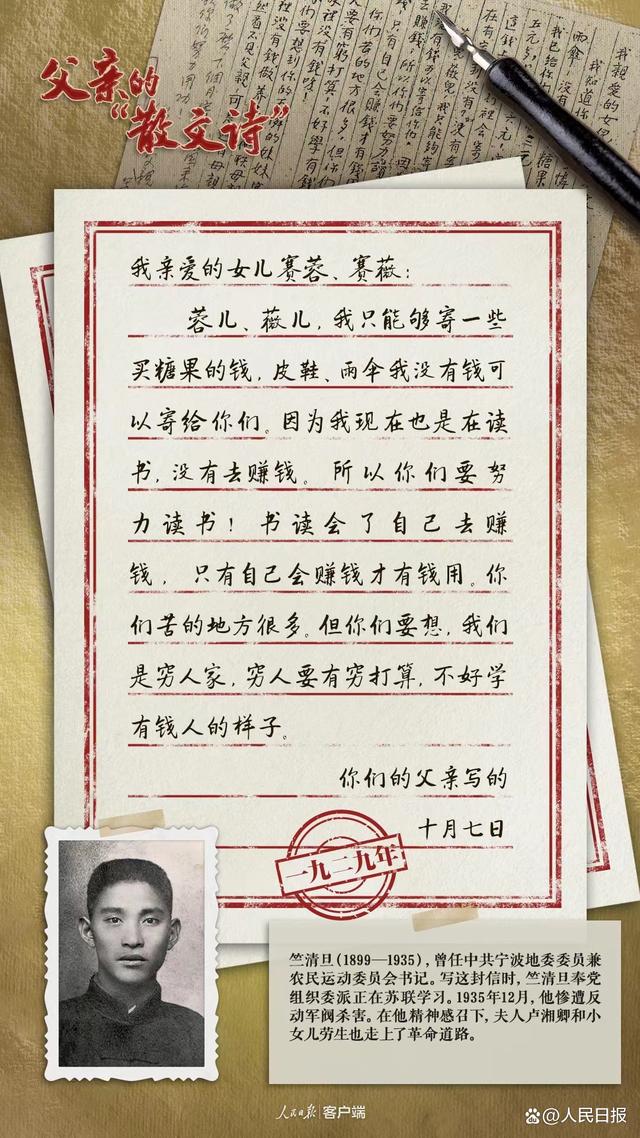 父亲的
“散文诗”
我亲爱的女儿赛蓉、赛薇：
蓉儿、薇儿，我只能够寄一些
买糖果的钱，皮鞋、雨伞我没有钱可
以寄给你们。因为我现在也是在读
书，没有去赚钱。所以你们要努
力读书！书读会了自己去赚
钱，只有自己会赚钱才有钱用。你
们苦的地方很多。但你们要想，我们
是穷人家，穷人要有穷打算，不好学
有钱人的样子。
你们的父亲写的
十月七日
一九二九年
竺清旦(1899—1935)，曾任中共宁波地委委员兼
农民运动委员会书记。写这封信时，竺清旦奉党
组织委派正在苏联学习。1935年12月，他惨遭反
动军阀杀害。在他精神感召下，夫人卢湘卿和小
女儿劳生也走上了革命道路。
人民日报 客户端
@人民日报